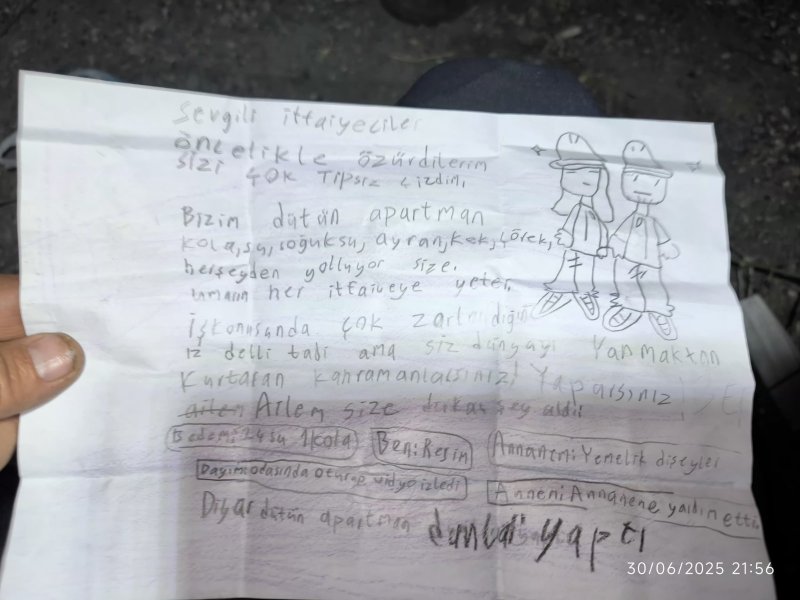 Sevgili itfaiyeciler
öncelikle özürdilerim
sizi çok Tipsiz çizdim,
Bizim dütün apartman
kola, su, soğuksu, ayran, kek, çörek,
herşeyden yolluyor size.
umarım her itfaiyeye yeter.
iş konusunda çok zarlandığın
iz delli tabi ama siz dünyayı Yanmaktan
Kurtaran kahramanlarsınız! Yaparsınız
Ailem size dikaç şey aldı!
Dedem: su 1kola Ben: Resim Annanem: Yemelik dişeyler
Dayım: odasında oturup vidyo izledi Annem: Annaneme yardım etti.
Diğar dütün apartman yaptı
30/06/2025 21:56